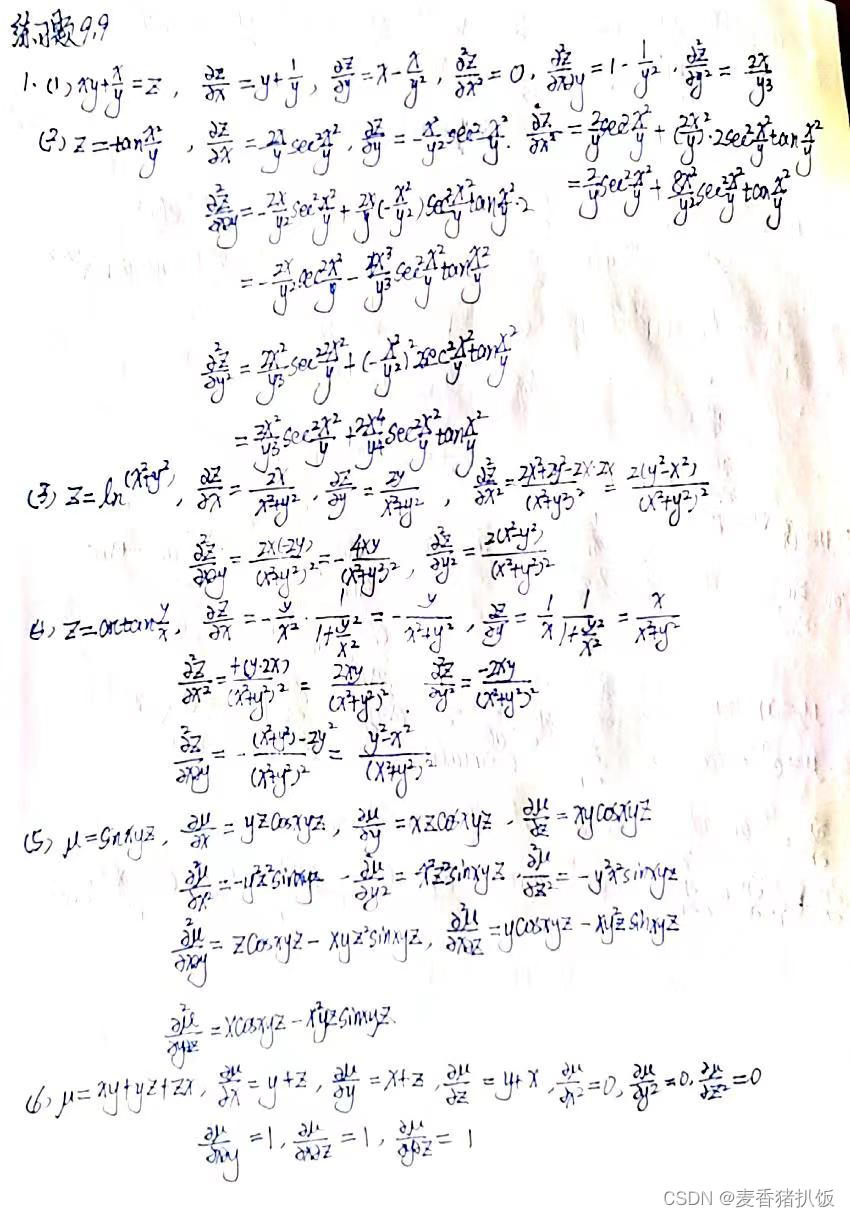 练习题9.9
1. (1) xy+x/y=z, ∂z/∂x=y+1/y, ∂z/∂y=x-x/y², ∂²z/∂x²=0, ∂²z/∂x∂y=1-1/y², ∂²z/∂y²=2x/y³
(2) z=tan x²/y, ∂z/∂x=2x/y sec² x²/y, ∂z/∂y=-x²/y² sec² x²/y. ∂²z/∂x²=2/y sec² x²/y+(2x/y)²·2sec² x²/y tan x²/y
=2/y sec² x²/y+8x²/y² sec² x²/y tan x²/y
∂²z/∂x∂y=-2x/y² sec² x²/y+2x/y(-x²/y²)sec² x²/y tan x²/y·2
=-2x/y² sec² x²/y- x³/y³ sec² x²/y tan x²/y
∂²z/∂y²=2x²/y³ sec² x²/y+(-x²/y²)²2sec² x²/y tan x²/y
=2x²/y³ sec² x²/y+2x⁴/y⁴ sec² x²/y tan x²/y
(3) z=ln(x²+y²), ∂z/∂x=2x/(x²+y²), ∂z/∂y=2y/(x²+y²), ∂²z/∂x²=(2x²+2y²-2x·2x)/(x²+y²)²=2(y²-x²)/(x²+y²)²
∂²z/∂x∂y=2x(-2y)/(x²+y²)²=-4xy/(x²+y²)², ∂²z/∂y²=2(x²-y²)/(x²+y²)²
(4) z=arctan y/x, ∂z/∂x=-y/x²·1/(1+y²/x²)=-y/(x²+y²), ∂z/∂y=1/x 1/(1+y²/x²)=x/(x²+y²)
∂²z/∂x²=+(y·2x)/(x²+y²)²=2xy/(x²+y²)². ∂²z/∂y²=-2xy/(x²+y²)²
∂²z/∂x∂y=-((x²+y²)-2y²)/(x²+y²)²=(y²-x²)/(x²+y²)²
(5) μ=sinxyz, ∂μ/∂x=yzcosxyz, ∂μ/∂y=xzcosxyz, ∂μ/∂z=xycosxyz
∂²μ/∂x²=-y²z²sinxyz ∂²μ/∂y²=-x²z²sinxyz, ∂²μ/∂z²=-y²x²sinxyz
∂²μ/∂x∂y=zcosxyz-xyz²sinxyz, ∂²μ/∂x∂z=ycosxyz-xy²zsinxyz
∂²μ/∂y∂z=xcosxyz-x²yzsinxyz.
(6) μ=xy+yz+zx, ∂μ/∂x=y+z, ∂μ/∂y=x+z, ∂μ/∂z=y+x, ∂μ/∂x²=0, ∂μ/∂y²=0, ∂²μ/∂z²=0
∂μ/∂x∂y=1, ∂μ/∂x∂z=1, ∂μ/∂y∂z=1
CSDN @麦香猪扒饭